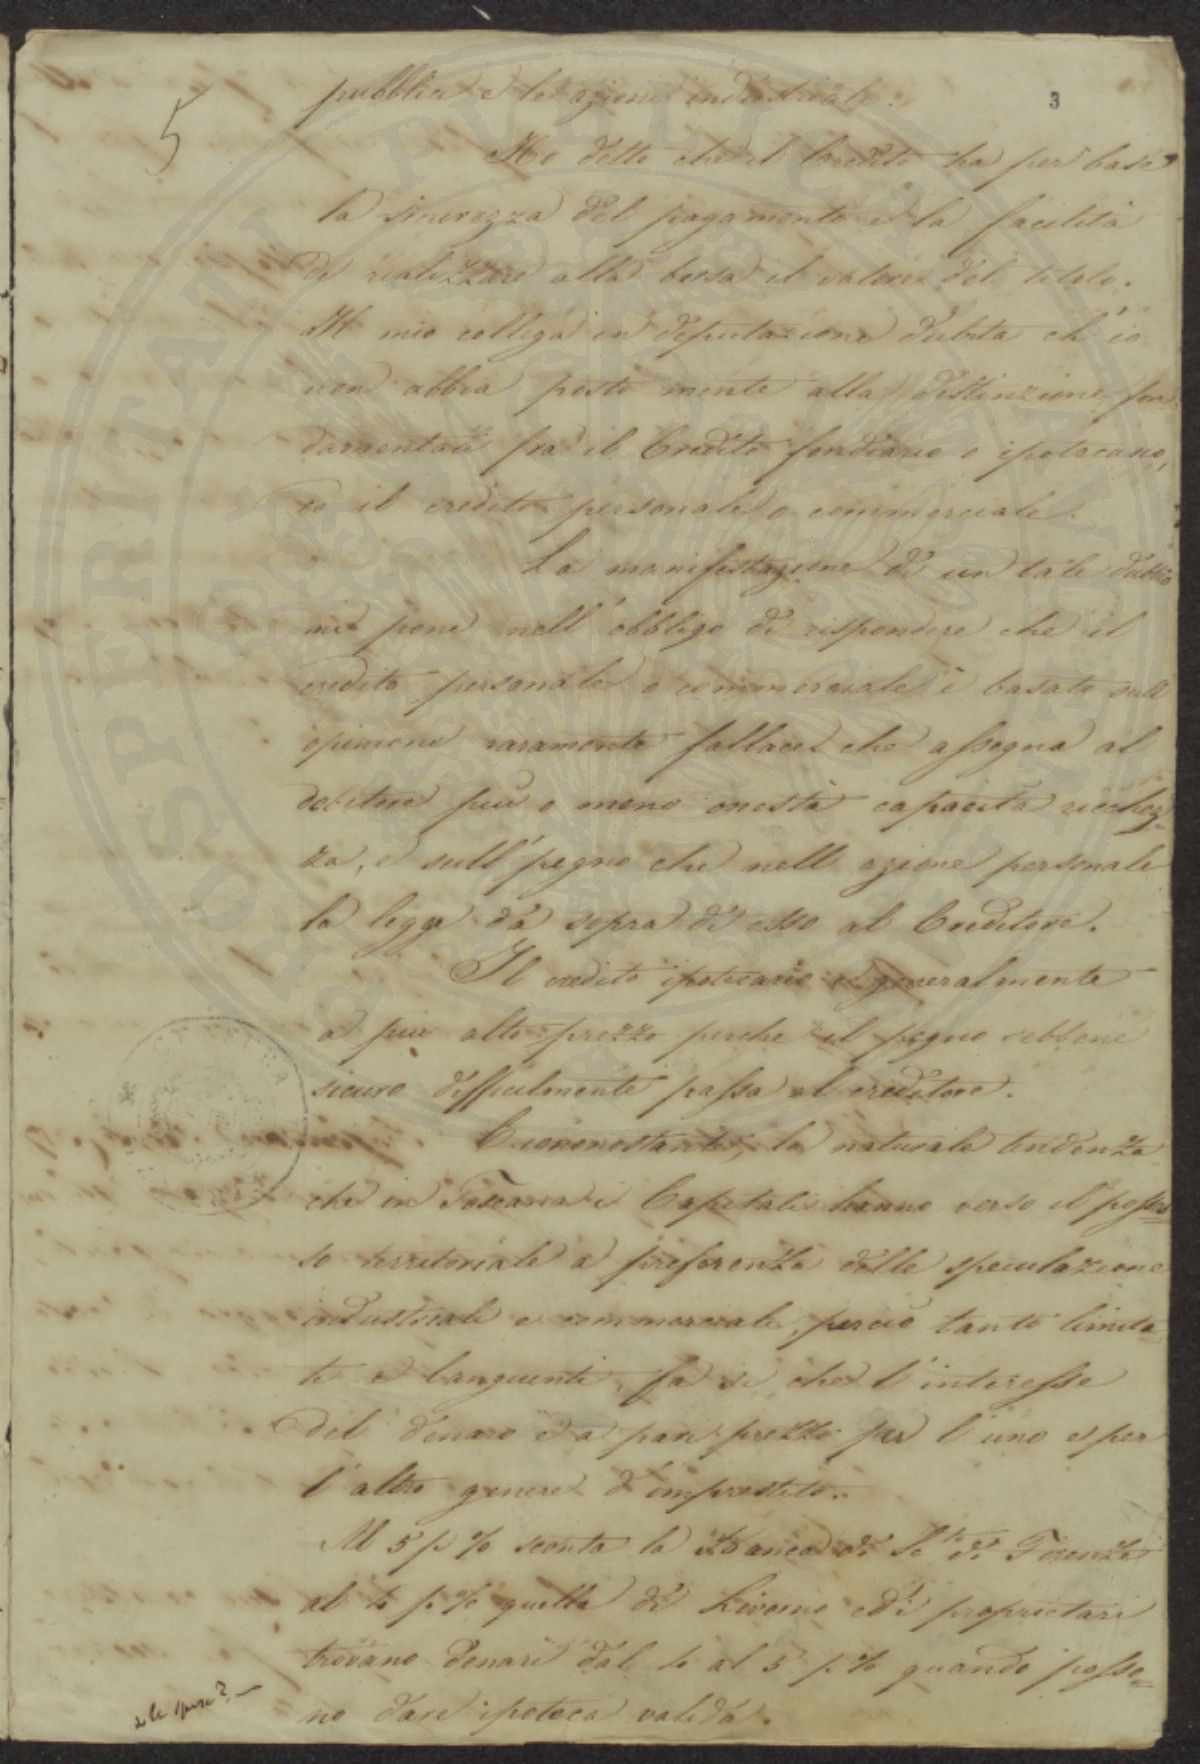 pubblici e le azioni industriali.
3
5
Ho detto che il Credito ha per base
la sicurezza del pagamento e la facilità
di realizzare alla borsa il valore del titolo.
Il mio collega in deputazione dubita ch'io
non abbia posto mente alla distinzione fon
damentali fra il Credito fondiario o ipotecario,
ed il credito personale o commerciale.
La manifestazione di un tale dubbio
mi pone nell'obbligo di rispondere che il
credito personale o commerciale è basato sull
opinione raramente fallace che assegna al
debitore più o meno onestà capacità ricchez=
za, e sull'pegno che nell azione personale
la legge dà sopra di esso al Creditore.
Il credito ipotecario è generalmente
a più alto prezzo perche il pegno sebbene
sicuro difficilmente passa al creditore.
Ciononostante, la naturale tendenza
che in Toscana i Capitali hanno verso il posses=
so territoriale a preferenza delle speculazione
industriali e commerciali, perciò tanto limita=
te e languenti, fa sì che l'interesse
del denaro è a pari prezzo per l'uno e per
l'altro genere d'imprestito.
Al 5 p % sconta la Banca di Sc.to di Firenze
al 4 p % quella di Livorno ed i proprietari
trovano denari dal 4 al 5 p % quando posso=
no dare ipoteca valida.
e le spese? —
POSPERITATI PVBLICAE